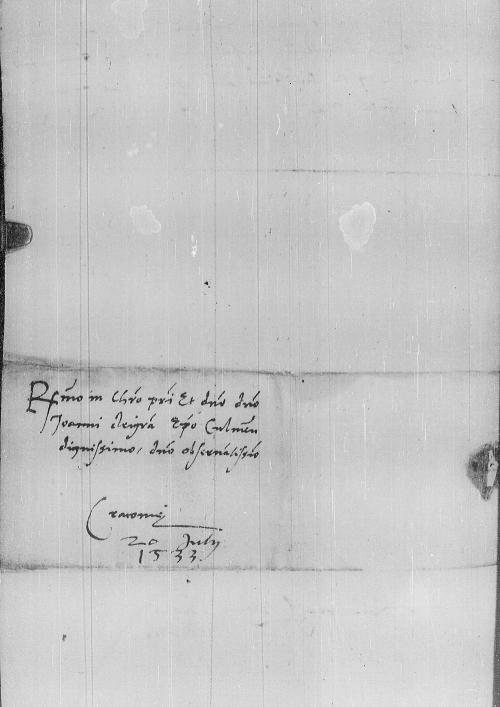 R̃mo in Chro pri Et dno dno
Joanni dei gra Epo Culmen
dignissimo, dno obseruandissimo
Cracovię
20 July
1533.